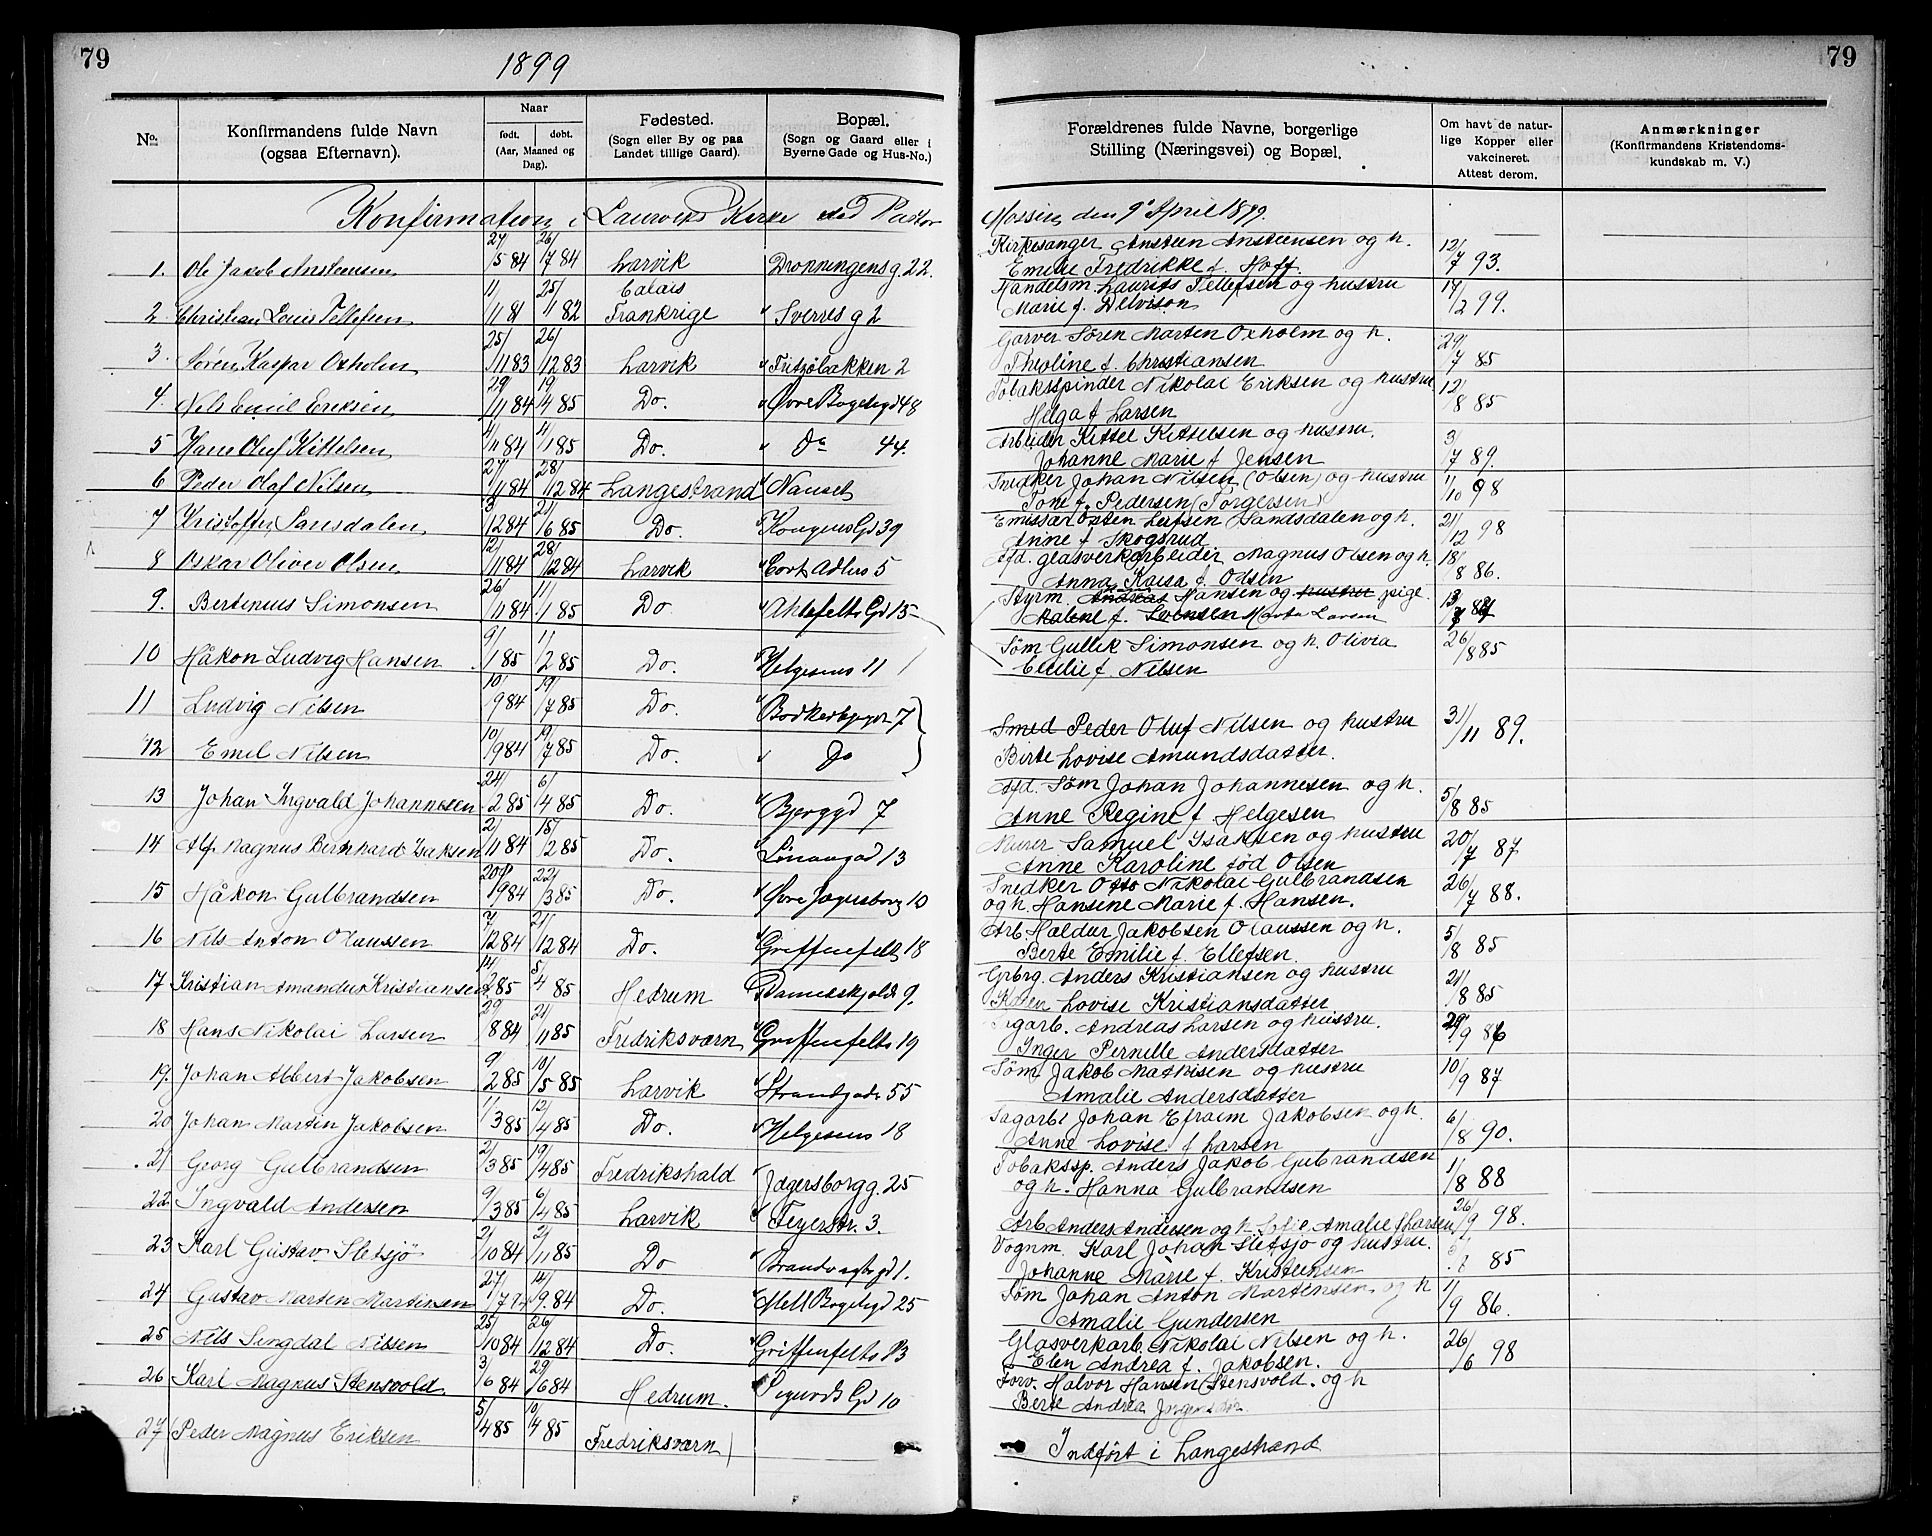 79
1899
79
No.
Konfirmandens fulde Navn
(ogsaa Efternavn).
Naar
født. døbt.
(Aar, Maaned og Dag).
Fødested.
(Sogn eller By og paa
Landet tillige Gaard).
Bopæl.
(Sogn og Gaard eller i
Byerne Gade og Hus-No.)
Forældrenes fulde Navne, borgerlige
Stilling (Næringsvei) og Bopæl.
Om havt de natur-
lige Kopper eller
vakcineret.
Attest derom.
Anmærkninger
(Konfirmandens Kristendoms-
kundskab m. V.)
Konfirmation i Laurviks Kirke ved Pastor Mossin den 9' April 1899.
1. Ole Jakob Ansteensen 27/5 84 26/7 84 Larvik Dronningensg. 22. Kirkesanger Ansteen Ansteensen og h. 12/7 93.
Emilie Fredrikke f. Hoff.
2 Christian Louis Tellefsen 11/11 81 25/11 82 Calais Frankrige " Sverres g 2 Handelsm. Laurits Tellefsen og hustru 14/2 99.
Marie f. Delvison
3. Søren Kaspar Oxholm 25/11 83 26/12 83 Larvik " Fritzöbakken 2 Garver Søren Morten Oxholm og h. 29/7 85
Theoline f. Christiansen
4. Nils Emil Eriksen 29/11 84 19/4 85 Do. " Øvre Bøgeligd 48 Tobaksspinder Nikolai Eriksen og hustru 12/8 85
Helga f. Larsen
5 Hans Oluf Kittelsen 4/11 84 4/1 85 Do. " Do 44. Arbeider Kittel Kittelsen og hustru. 3/7 89.
Johanne Marie f Jensen
6 Peder Olaf Nilsen 27/11 84 28/12 84 Langestrand " Nanset Snedker Johan Nilsen (Olsen) og hustru 11/10 98
Tone f. Pedersen (Torgersen)
7 Kristoffer Sandsdalen 3/12 84 21/6 85 Do. " Kongens Gd 39 Emissær Osten Leifsen Sandsdalen og h. 21/12 98
Anne f Skogsrud
8 Oskar Oliver Olsen 12/11 84 28/12 84 Larvik " Cort Adlers 5 Afd. glasverkarbeider Magnus Olsen og h. 18/8 86.
Anna Kaisa f. Olsen
9. Bertinius Simonsen 26/11 84 11/1 85 Do " Ahlefelts Gd 15 Styrm. Andreas Hansen og hustru pige.
Malene f. Svendsen Marta Larsen
10 Håkon Ludvig Hansen 9/1 85 1/2 85 Do. " Helgesens 11 Søm Gullik Simonsen og h. Olivia 26/8 85
Emilie f. Nilsen
11 Ludvig Nilsen 10/9 84 19/7 85 Do. " Bødkerbgd 7
Smed Peder Oluf Nilsen og hustru 31/11 89.
12 Emil Nilsen 10/9 84 19/7 85 Do. " Do
Birte Lovise Amundsdatter.
13 Johan Ingvald Johannesen 24/2 85 6/4 85 Do. " Bjerggd 7 Afd. Søm Johan Johannesen og h. 5/8 85
Anne Regine f Helgesen
14 Alf Magnus Bernhard Isaksen 2/11 84 15/2 85 Do. " Linaaegd 13 Murer Samuel Isaksen og hustru 20/7 87
Anne Karoline fød Olsen
15 Håkon Gulbrandsen 20/9 84 22/3 85 Do. " Øvre Jægersborg 10 Snedker Otto Nikolai Gulbrandsen 26/7 88.
og h. Hansine Marie f. Hansen.
16 Nils Anton Olaussen 7/12 84 21/12 84 Do. " Griffenfelts 18 Arb Haldur Jakobsen Olaussen og h. 5/8 85
Berte Emilie f. Ellefsen.
17 Kristian Amandus Kristiansen 14/2 85 5/4 85 Hedrum Danneskjolds 9. Grbrg. Anders Kristiansen og hustru 21/8 85
Lovise Kristiansdatter
18 Hans Nikolai Larsen 29/8 84 21/11 85 Fredriksværn " Griffenfelts 19 Sagarb. Andreas Larsen og hustru. 29/9 86
Inger Pernille Andersdatter
19. Johan Albert Jakobsen 9/2 85 10/5 85 Larvik " Strandgade 55 Søm Jakob Mathisen og hustru 10/9 87
Amalie Andersdatter
20 Johan Martin Jakobsen 1/3 85 12/4 85 Do. " Helgesens 18 Sagarb. Johan Efraim Jakobsen og h. 6/8 90.
Anne Lovise f Larsen
21 Georg Gulbrandsen 2/3 85 19/4 85 Fredrikshald Jægersborgg. 25 Tobakssp. Anders Jakob Gulbrandsen 1/8 88
og h. Hanna Gulbrandsen
22 Ingvald Andersen 9/3 85 6/4 85 Larvik " Feyerstr. 3. Arb Anders Andersen og h. Amalie f Larsen 26/9 98.
23 Karl Gustav Sletsjö 2/10 84 2/11 85 Do Brandvagtsgd 1. Vognm. Karl Johan Sletsjö og hustru. 85
Johanne Marie f. Kristensen
24 Gustav Marten Martinsen 27/7 14/9. 84 Do. " Mell Bøgeligd 25 Søm Johan Anton Martensen og h 11/9 86.
Amalie Gundersen
25 Nils Singdal Nilsen 25/10 84 26/12 84 Do. " Griffenfelts 13 Glasverkarb. Nikolai Nilsen og h. 26/6 98
Elen Andrea f. Jakobsen.
26 Karl Magnus Stensvold 3/6 84 29/6 84 Hedrum. " Sigurds Gd 10 Forv. Halvor Hansen Stensvold. og h
Berte Andrea
27 Peder Magnus Eriksen 5/4 85 10/4 85 Fredriksværn Indført i Langestrand